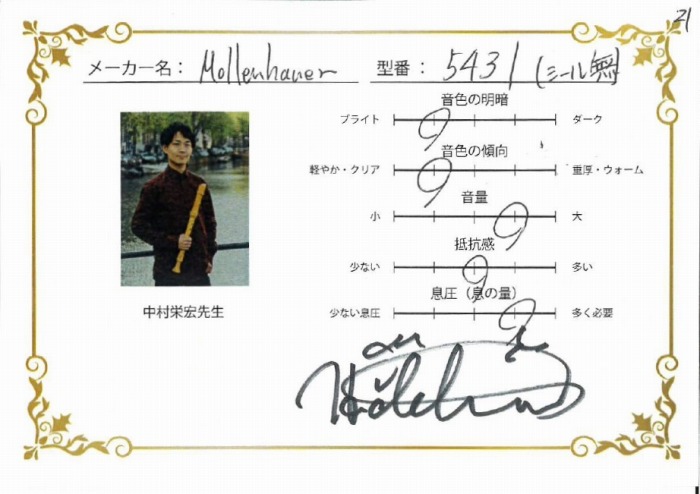 21
メーカー名： Mollenhauer 型番： 5431 (ミール無)
音色の明暗
ブライト ダーク
音色の傾向
軽やか・クリア 重厚・ウォーム
音量
小 大
抵抗感
少ない 多い
息圧（息の量）
少ない息圧 多く必要
中村栄宏先生